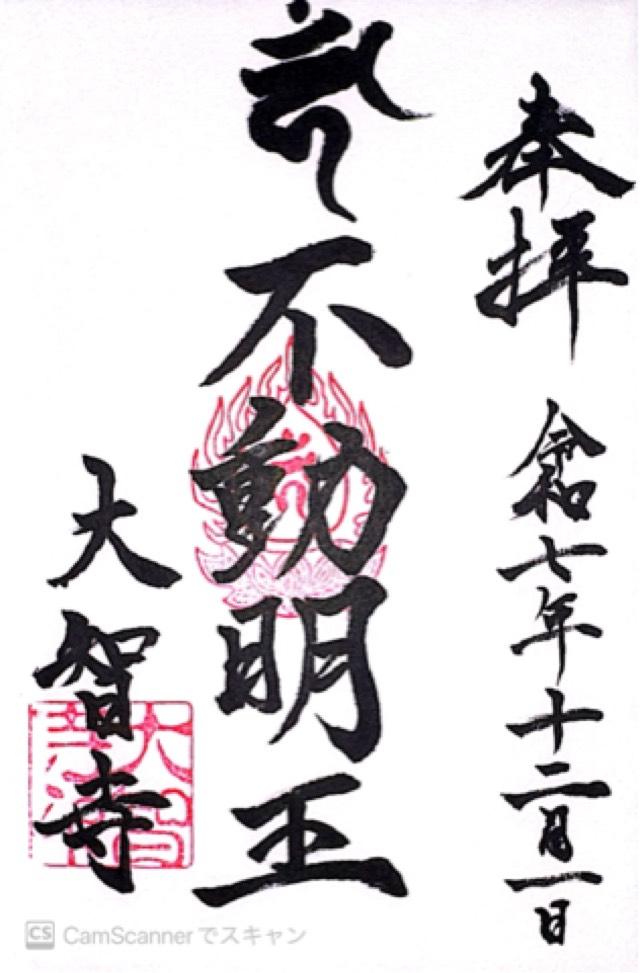 奉拝 令和七年十二月一日
不動明王
大智寺
CS CamScannerでスキャン